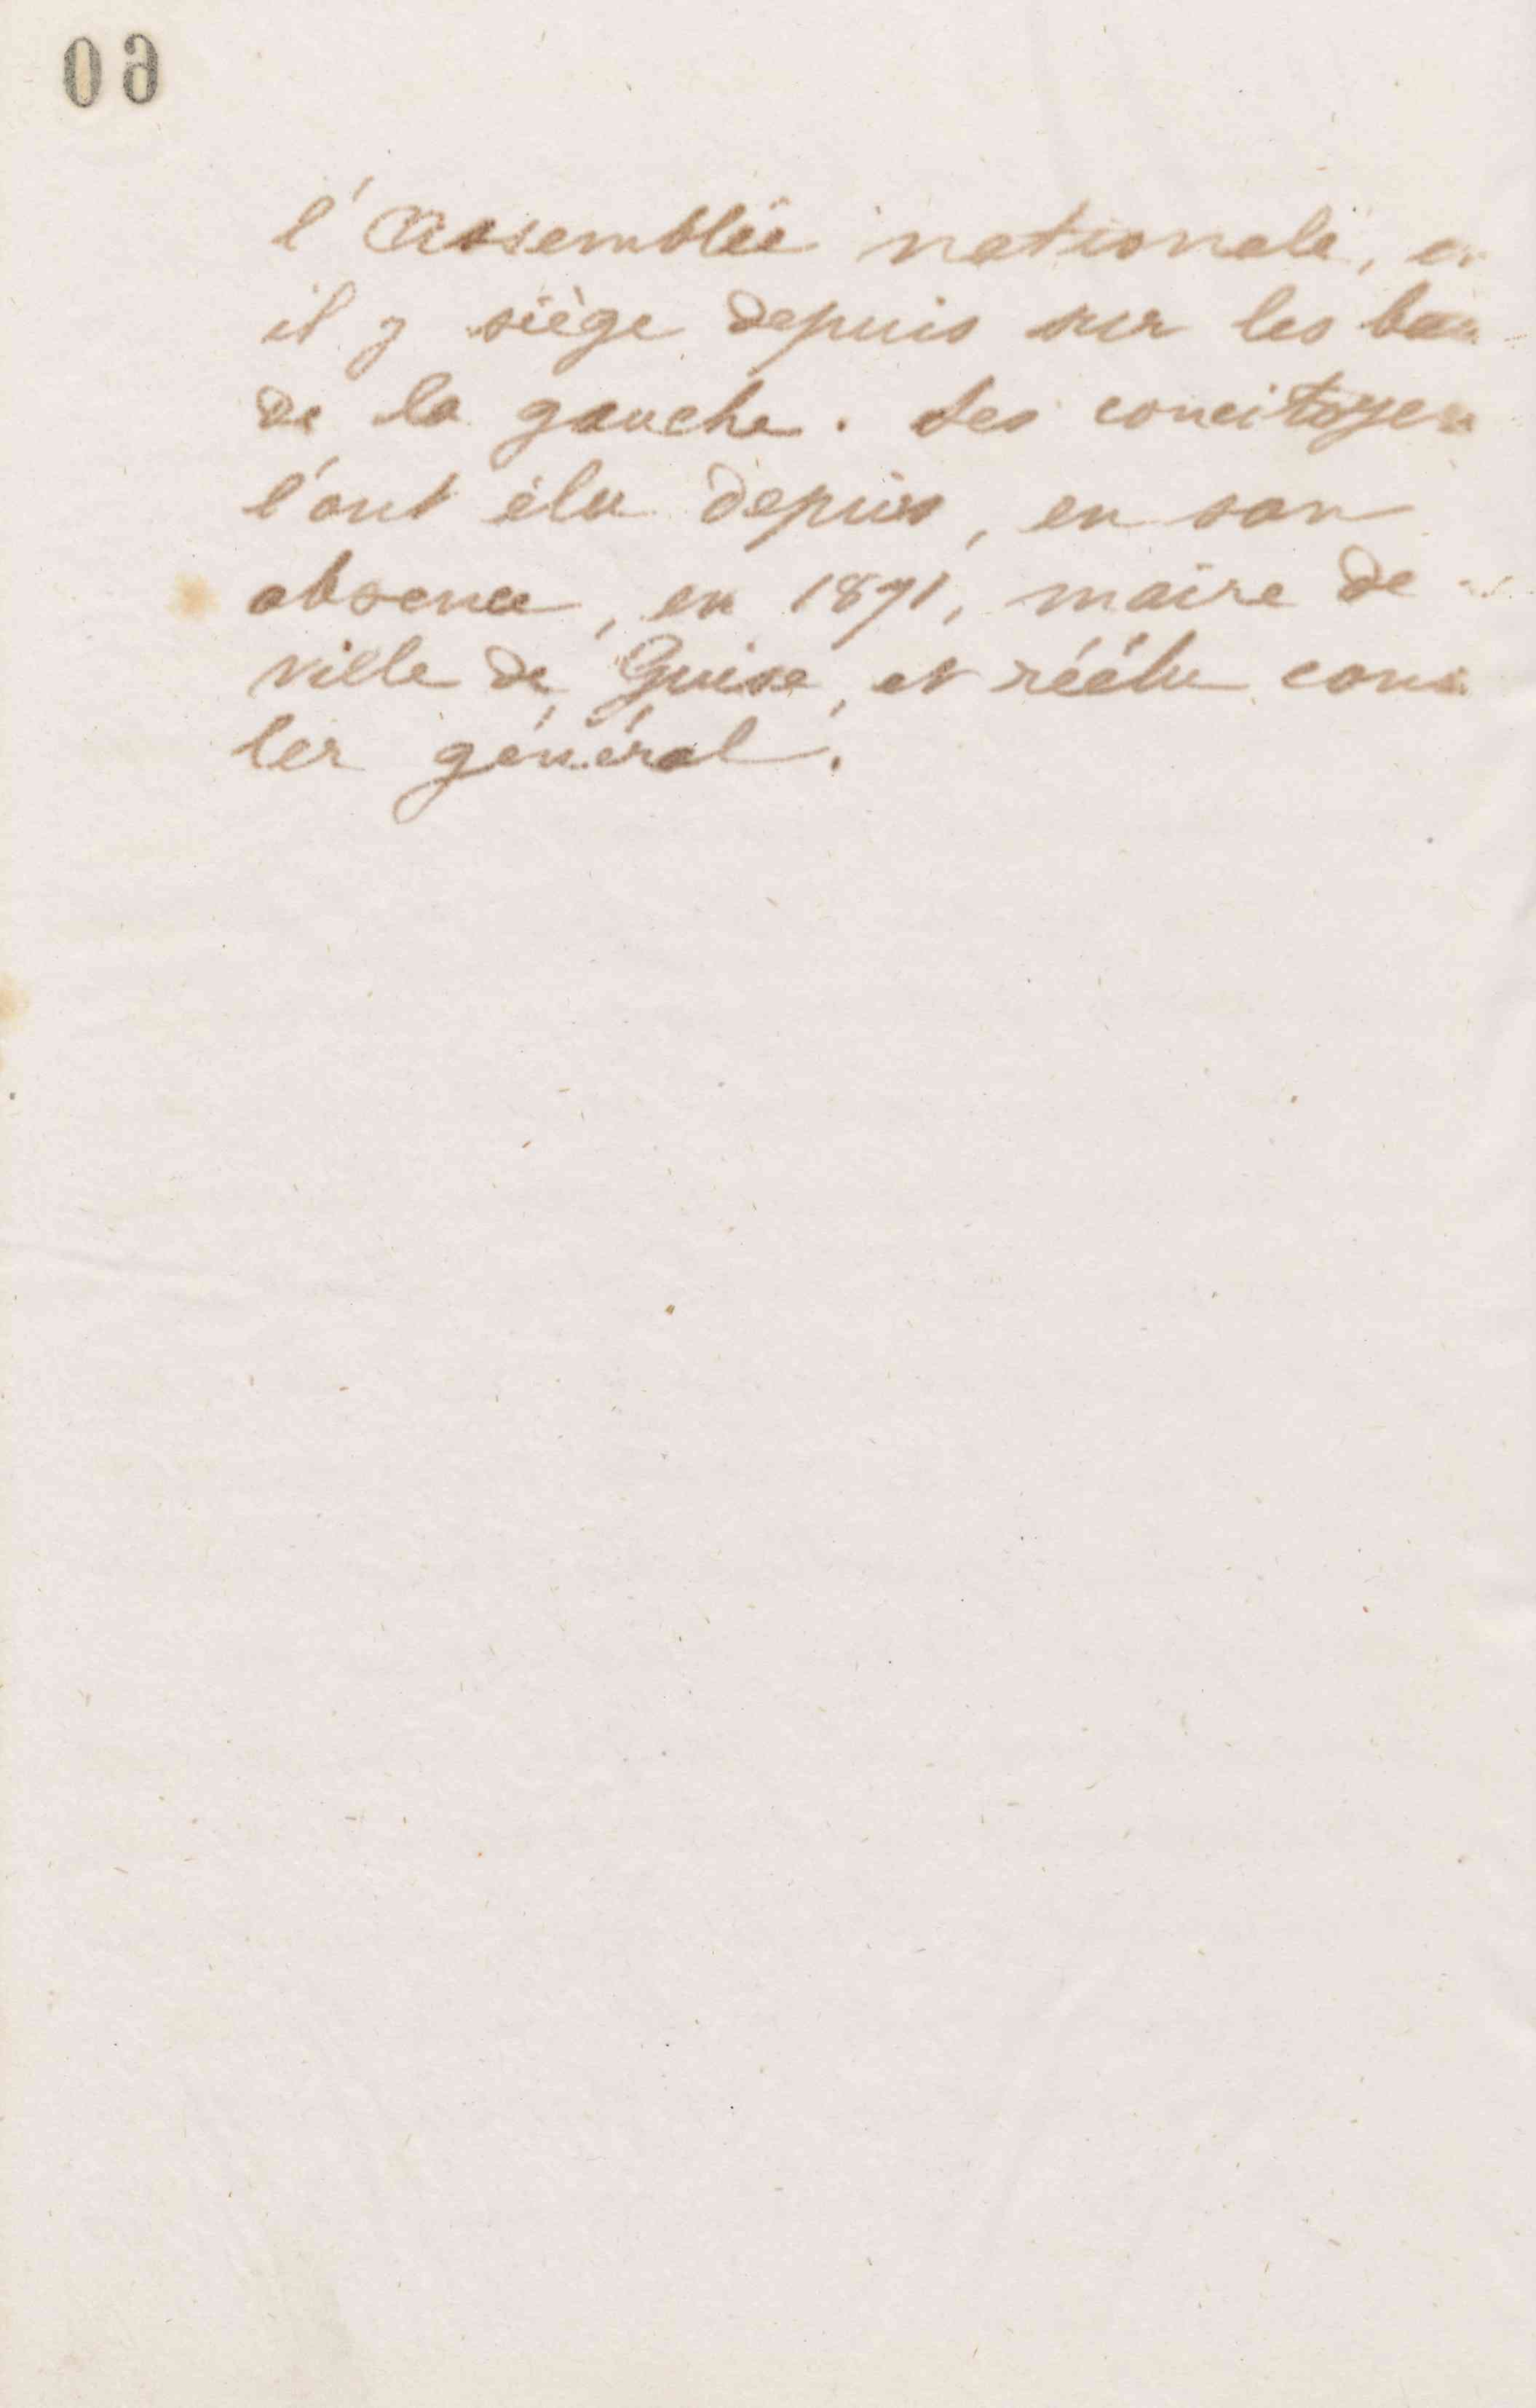 60
l'Assemblée nationale, et
il y siège depuis sur les
de la gauche. Ses concitoyens
l'ont élu depuis, en son
absence, en 1871, maire de
ville de Guise, et réélu
ler général.